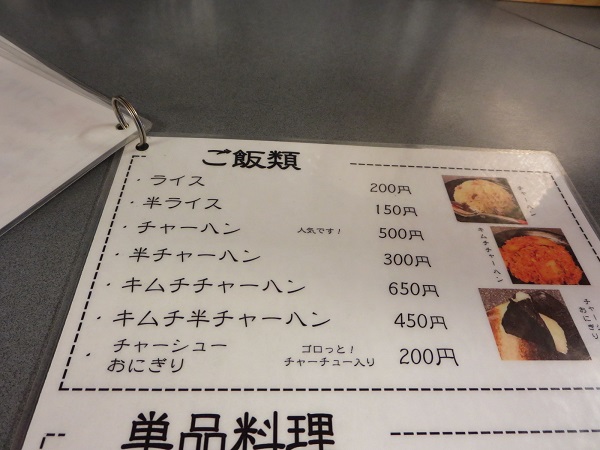 ご飯類
・ライス 200円
・半ライス 150円
・チャーハン 人気です! 500円
・半チャーハン 300円
・キムチチャーハン 650円
・キムチ半チャーハン 450円
・チャーシュー
おにぎり
ゴロっと!
チャーチュー入り
200円
チャーハン
キムチチャーハン
おにぎり
単品料理